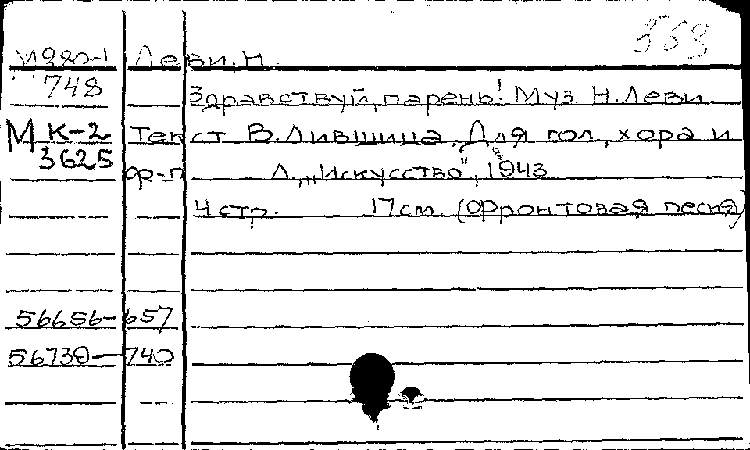 559
И980-1 Леви, Н.
748 Здравствуй, парень! Муз. Н. Леви
М К-2 Текст В. Лившица. Для гол., хора и
3625 ф-п Л., „Искусство", 1943
4 стр. 17 см. (Фронтовая песня)
56656-657
56739-740